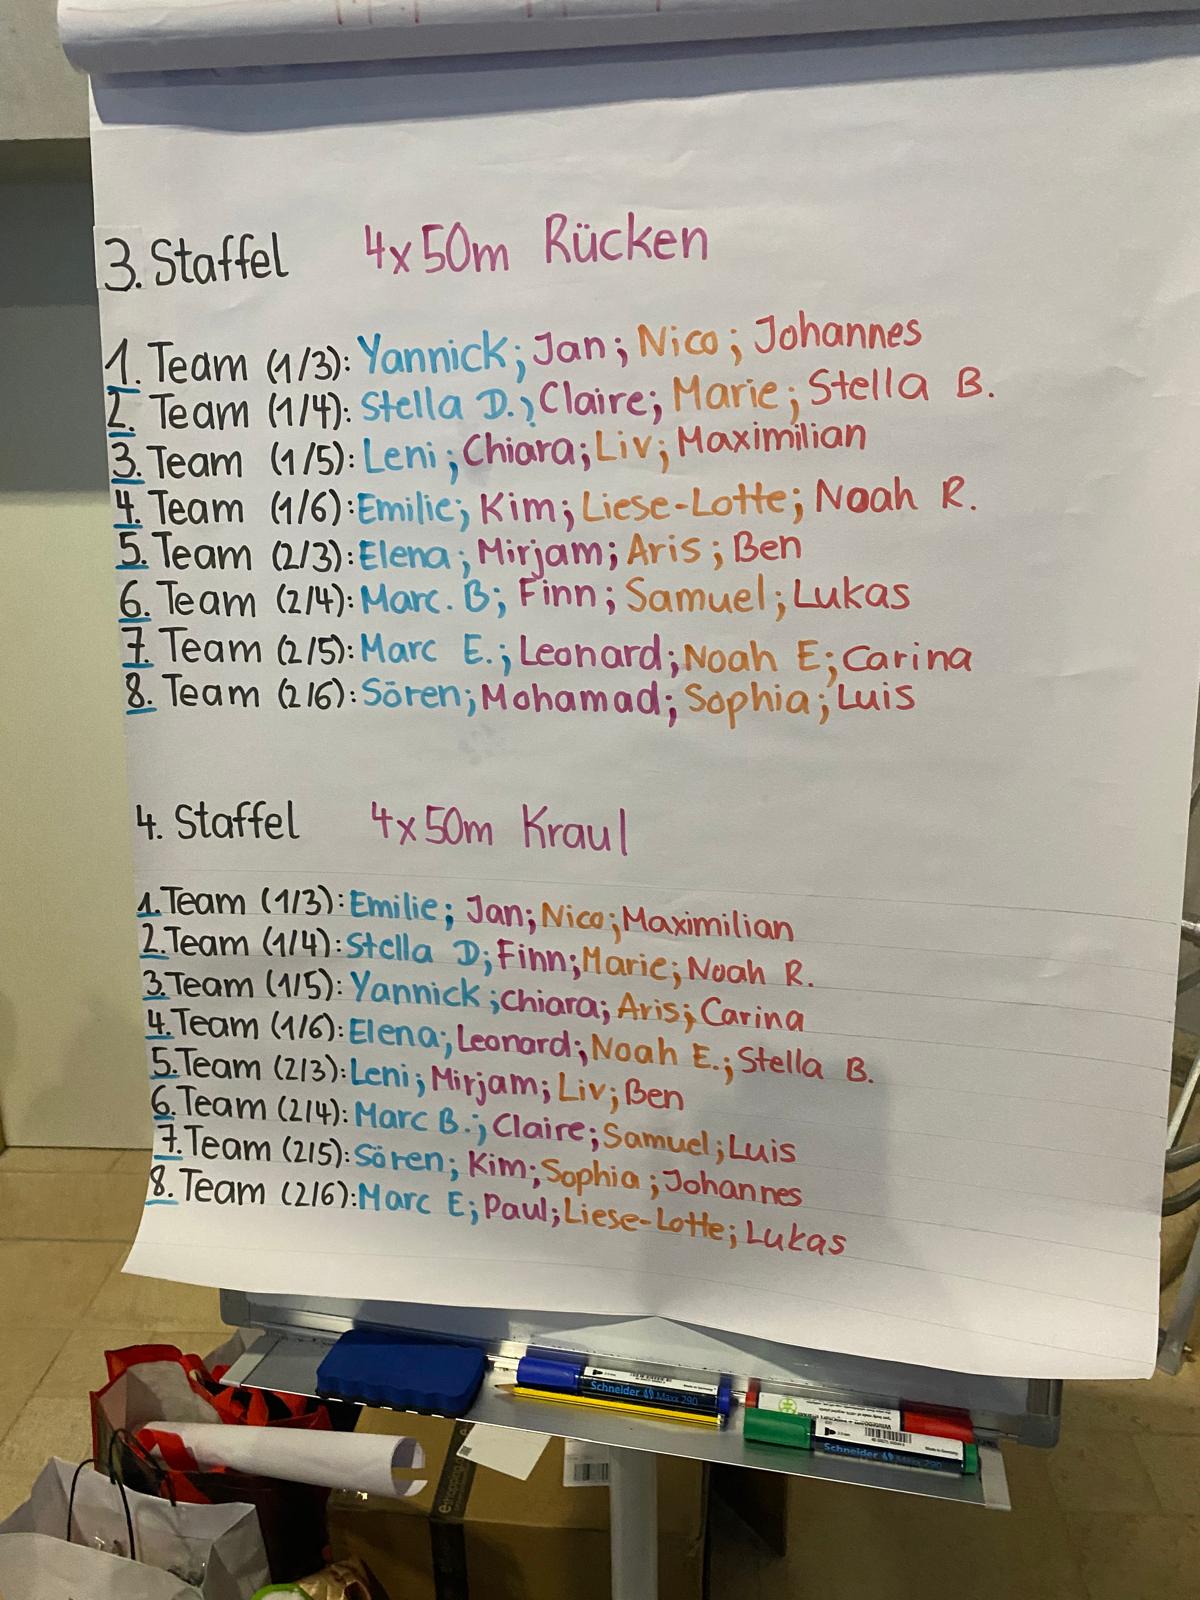 3. Staffel 4x50m Rücken
1. Team (1/3): Yannick; Jan; Nico; Johannes
2. Team (1/4): Stella D.; Claire; Marie; Stella B.
3. Team (1/5): Leni; Chiara; Liv; Maximilian
4. Team (1/6): Emilie; Kim; Liese-Lotte; Noah R.
5. Team (2/3): Elena; Mirjam; Aris; Ben
6. Team (2/4): Marc. B; Finn; Samuel; Lukas
7. Team (2/5): Marc E.; Leonard; Noah E; Carina
8. Team (2/6): Sören; Mohamad; Sophia; Luis
4. Staffel 4x50m Kraul
1. Team (1/3): Emilie; Jan; Nico; Maximilian
2. Team (1/4): Stella D; Finn; Marie; Noah R.
3. Team (1/5): Yannick; Chiara; Aris; Carina
4. Team (1/6): Elena; Leonard; Noah E.; Stella B.
5. Team (2/3): Leni; Mirjam; Liv; Ben
6. Team (2/4): Marc B.; Claire; Samuel; Luis
7. Team (2/5): Sören; Kim; Sophia; Johannes
8. Team (2/6): Marc E; Paul; Liese-Lotte; Lukas
Schneider Maxx 290
Schneider Maxx 290